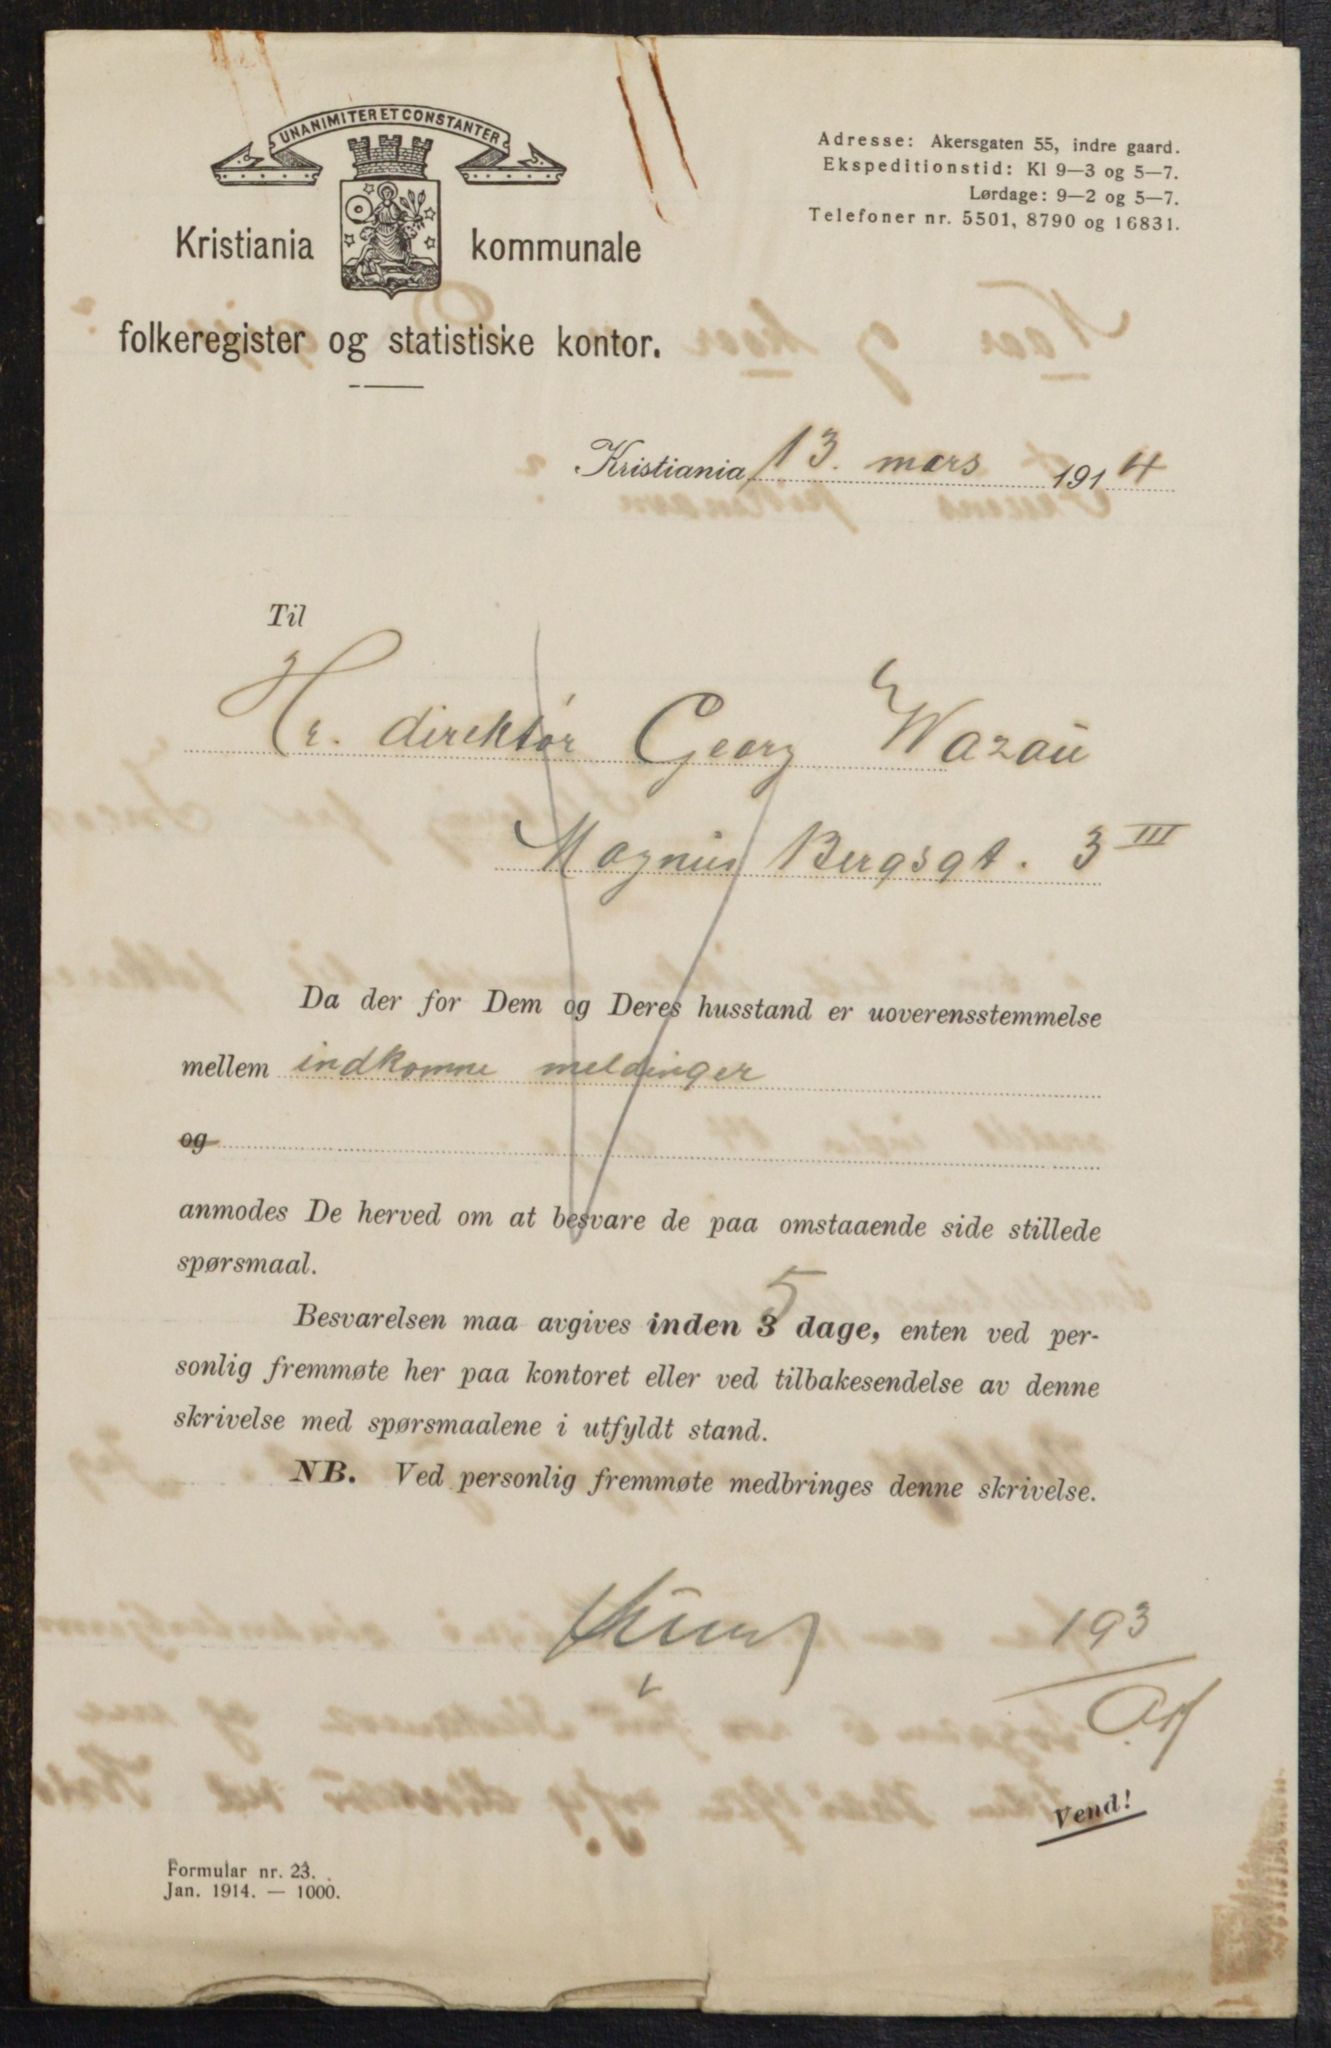 UNANIMITER ET CONSTANTER
Kristiania kommunale
folkeregister og statistiske kontor.
Adresse: Akersgaten 55, indre gaard.
Ekspeditionstid: Kl 9—3 og 5—7.
Lørdage: 9—2 og 5—7.
Telefoner nr. 5501, 8790 og 16831.
Kristiania, 13. mars 1914
Til
Hr. direktør Georg Wazaŭ
Magnus Bergsgt. 3 III
Da der for Dem og Deres husstand er uoverensstemmelse
mellem indkomne meldinger
og
anmodes De herved om at besvare de paa omstaaende side stillede
spørsmaal.
5
Besvarelsen maa avgives inden 3 dage, enten ved per-
sonlig fremmøte her paa kontoret eller ved tilbakesendelse av denne
skrivelse med spørsmaalene i utfyldt stand.
NB. Ved personlig fremmøte medbringes denne skrivelse.
193
Vend!
Formular nr. 23.
Jan. 1914. — 1000.